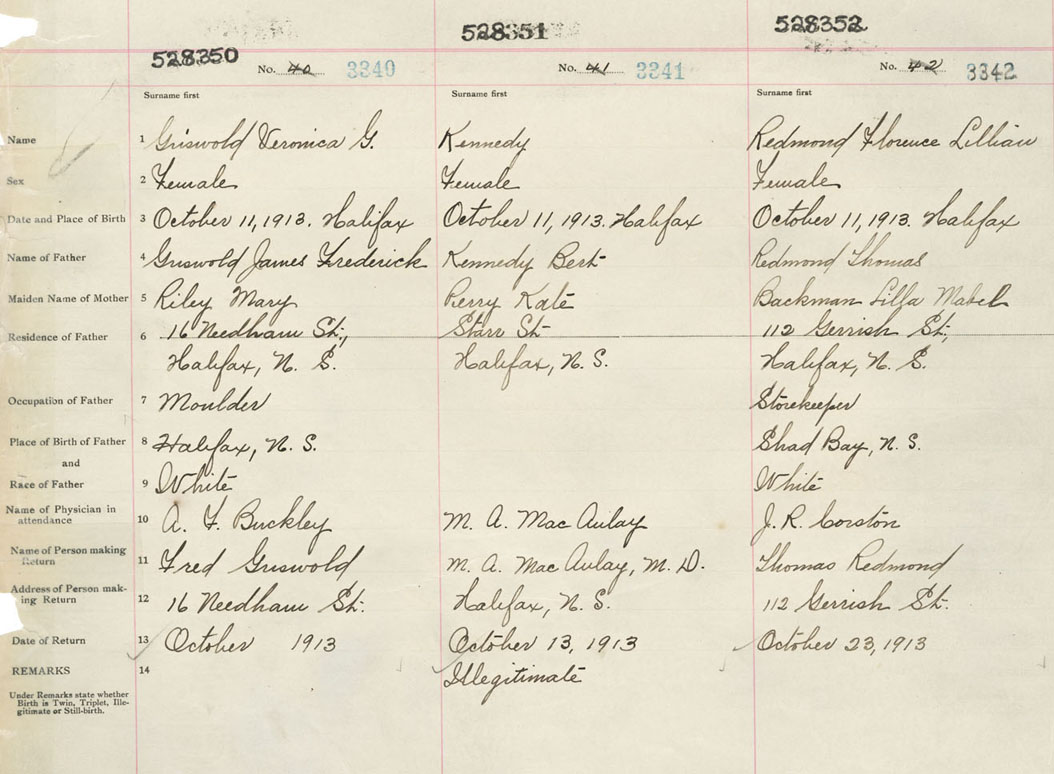 528350 528351 528352
No. 40 3340 No. 41 3341 No. 42 3342
Surname first Surname first Surname first
Name 1 Griswold Veronica G. Kennedy Redmond Florence Lillian
Sex 2 Female Female Female
Date and Place of Birth 3 October 11, 1913. Halifax October 11, 1913. Halifax October 11, 1913. Halifax
Name of Father 4 Griswold James Frederick Kennedy Bert Redmond Thomas
Maiden Name of Mother 5 Riley Mary Perry Kate Backman Lilla Mabel
Residence of Father 6 16 Needham St., Starr St. 112 Gerrish St,
Halifax, N. S. Halifax, N. S. Halifax, N. S.
Occupation of Father 7 Moulder Storekeeper
Place of Birth of Father 8 Halifax, N. S. Shad Bay, N. S.
and
Race of Father 9 White White
Name of Physician in
attendance 10 A. F. Buckley M. A. MacAulay J. R. Corston
Name of Person making
Return 11 Fred Griswold M. A. MacAulay, M. D. Thomas Redmond
Address of Person mak-
ing Return 12 16 Needham St. Halifax, N. S. 112 Gerrish St.
Date of Return 13 October 1913 October 13, 1913 October 23, 1913
REMARKS 14 Illegitimate
Under Remarks state whether
Birth is Twin, Triplet, Ille-
gitimate or Still-birth.